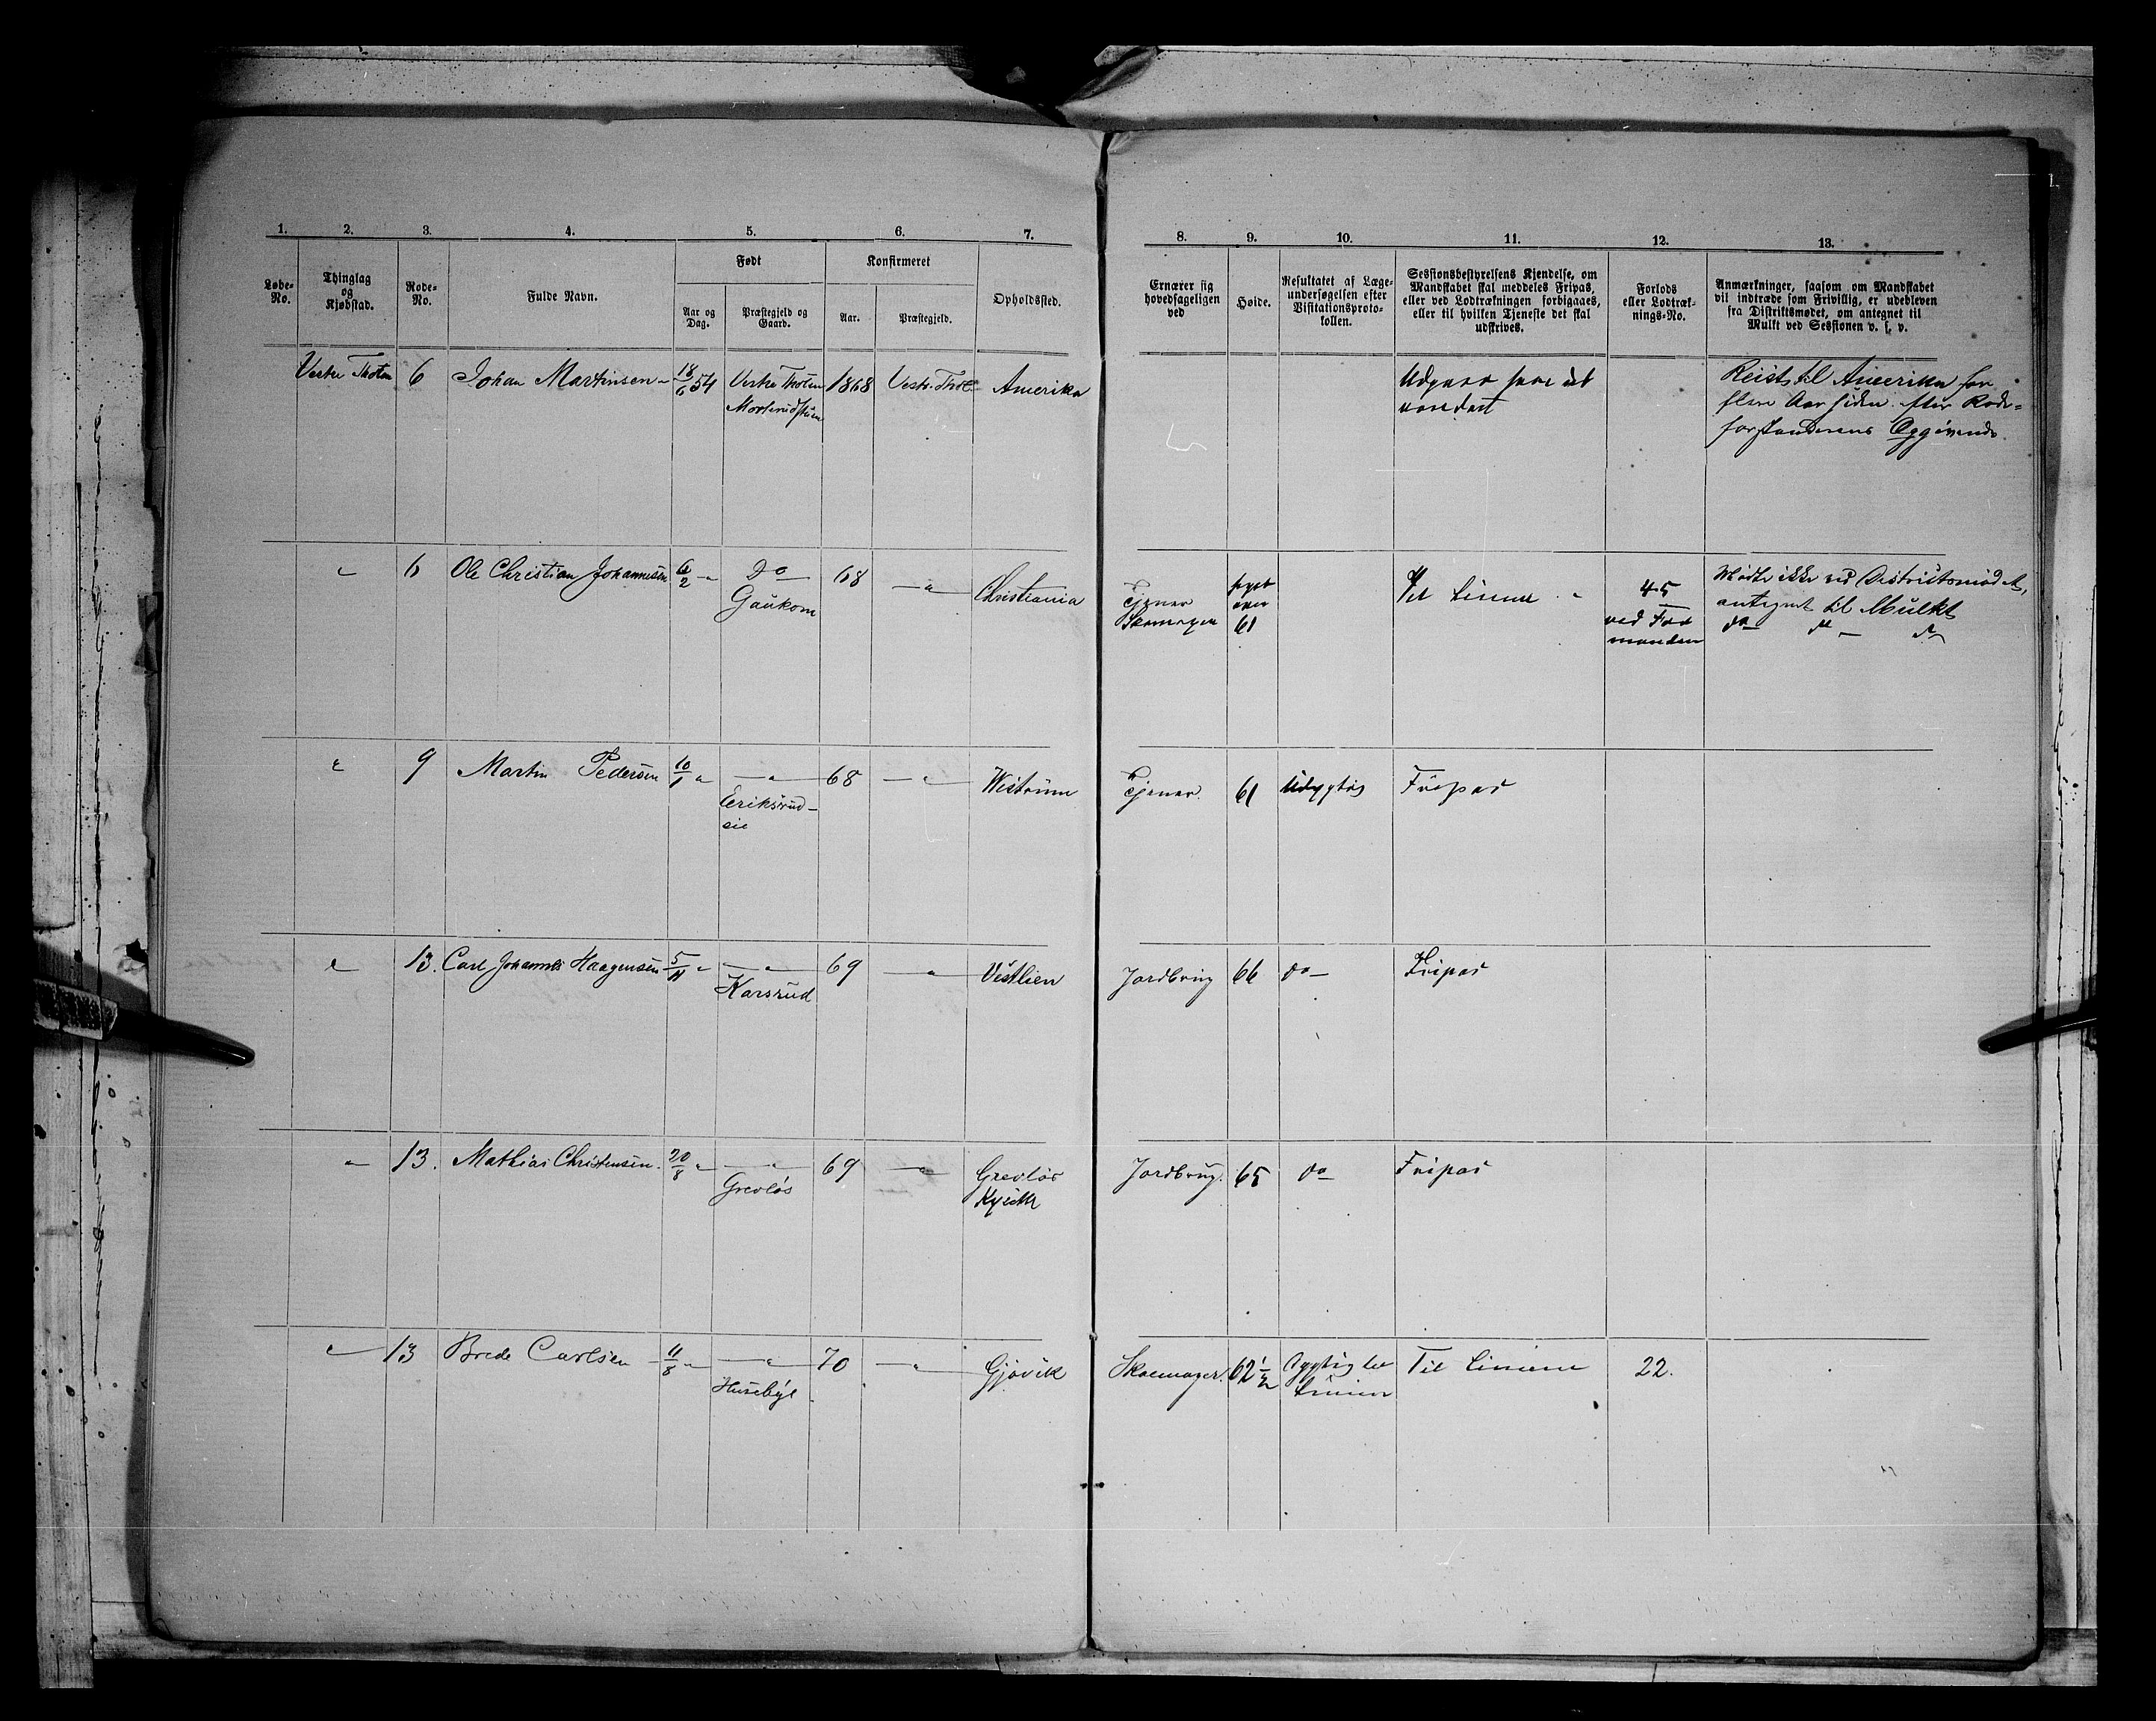 1. 2. 3. 4. 5. 6. 7. 8. 9. 10. 11. 12. 13.
Løbe-No. Thinglag og Kjøbstad. Rode-No. Fulde Navn. Født Konfirmeret Opholdssted.
Aar og Dag. Præstegjeld og Gaard. Aar. Præstegjeld.
Ernærer sig hovedsageligen ved
Høide.
Resultatet af Læge-undersøgelsen efter Visitationsproto-kollen.
Sessionsbestyrelsens Kjendelse, om Mandskabet skal meddeles Fripas, eller ved Lodtrækningen forbigaaes, eller til hvilken Tjeneste det skal udskrives.
Forlods eller Lodtræk-nings-No.
Anmærkninger, saasom om Mandskabet vil indtræde som Frivillig, er udebleven fra Distriktsmødet, om antegnet til Mulkt ved Sessionen v. s. v.
Vestre Thoten 6 Johan Martinsen 18/6 54 Vestre Thoten 1868 Vestr. Thot Amerika
Udgaar som ud
vandret
Reist til Amerika for
flere Aar siden efter Rode-
forstanderens Opgivende.
" 6 Ole Christian Johannesen 6/2 " Do 68 " Christiania
Gaukom
Tjener
Skomager
61
Til Linien
45
ved For
manden
Mødte ikke ved Distriktsmødet,
antegnet til Mulkt
do do do
" 9 Martin Pedersen 10/1 " " 68 " Wistrum Tjener. 61 Udygtig Fripas
Eriksrud-
eie
" 13. Carl Johannes Haagensen 5/11 " " 69 " Vestlien Jordbrug 66 do Fripas
Karsrud
" 13. Mathias Christensen. 20/8 " " 69 " Grevløs Jordbrug. 65 do Fripas
Grevløs
" 13 Brede Carlsen 11/8 " " 70 " Gjøvik Skomager. 62 1/2 Dygtig til Til Linien 22.
Linien
Husebye